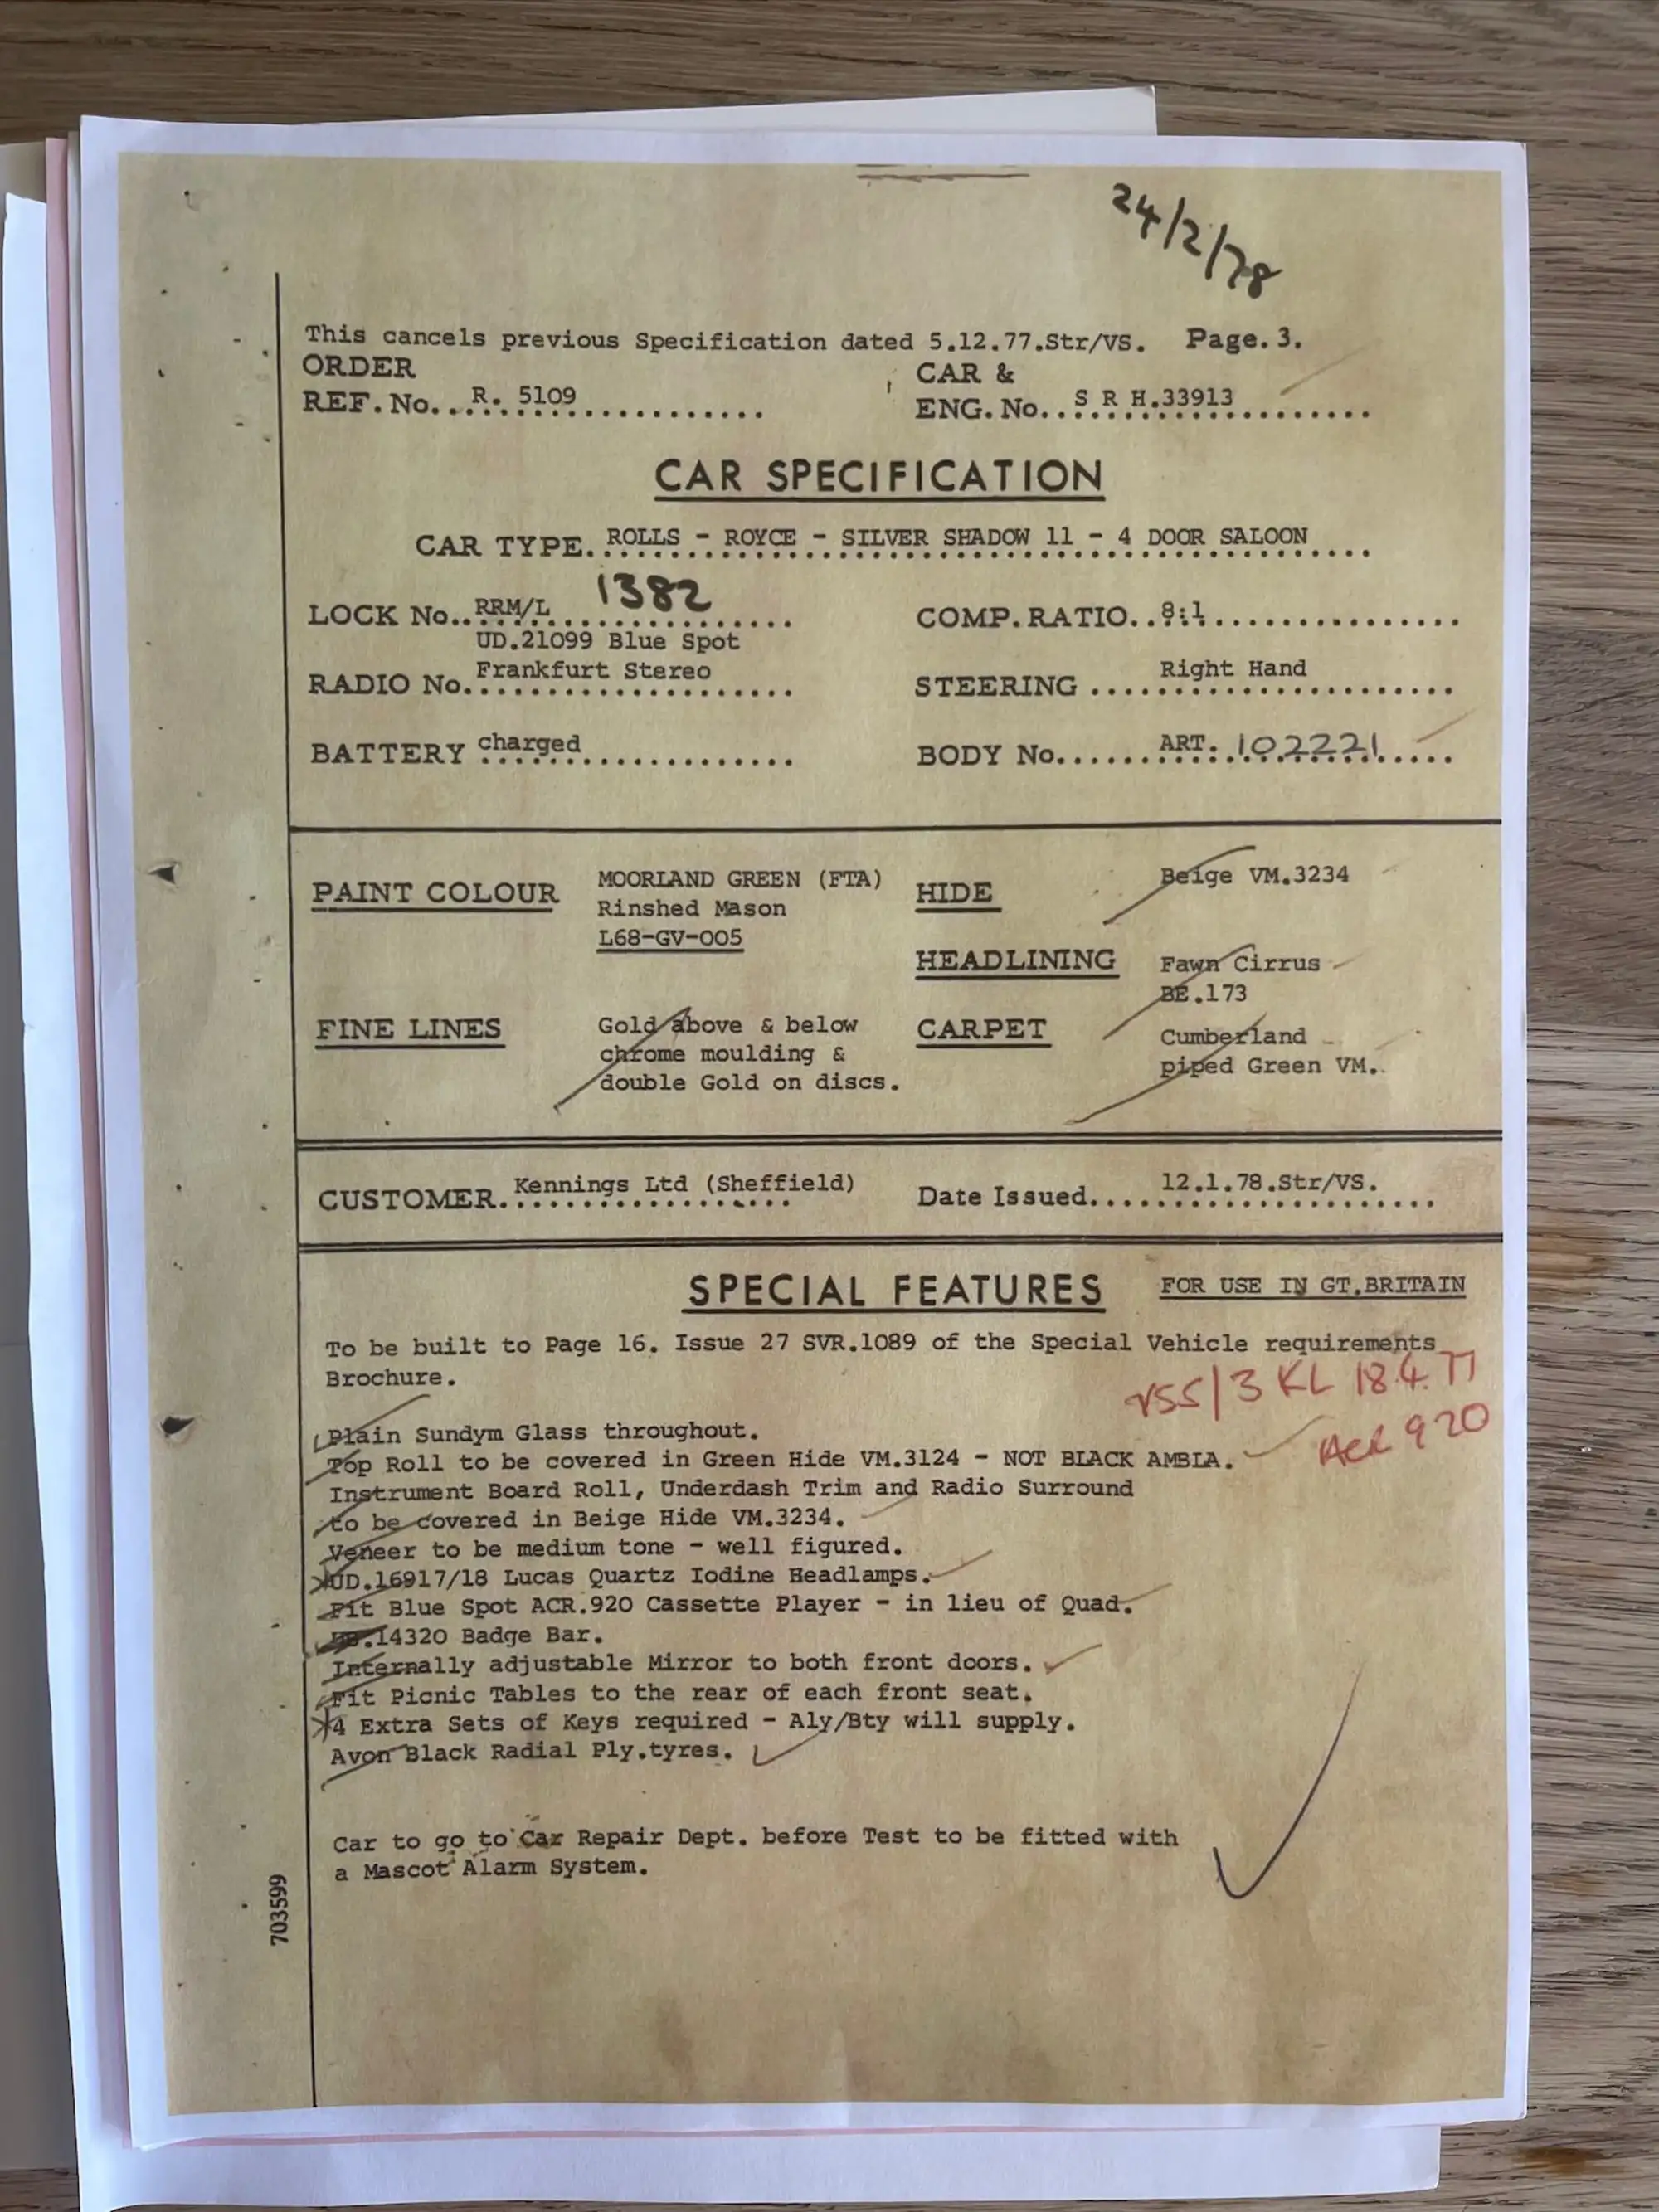 24/2/78
This cancels previous Specification dated 5.12.77.Str/VS. Page.3.
ORDER
REF.No... R. 5109
CAR &
ENG.No.. S R H.33913
CAR SPECIFICATION
CAR TYPE. ROLLS - ROYCE - SILVER SHADOW 11 - 4 DOOR SALOON
LOCK No.. RRM/L 1382
COMP.RATIO.. 8:1
UD.21099 Blue Spot
RADIO No. Frankfurt Stereo
STEERING Right Hand
BATTERY charged
BODY No. ART. 102221
PAINT COLOUR MOORLAND GREEN (FTA)
Rinshed Mason
L68-GV-005
HIDE Beige VM.3234
HEADLINING Fawn Cirrus
BE.173
FINE LINES Gold above & below
chrome moulding &
double Gold on discs.
CARPET Cumberland
piped Green VM.
CUSTOMER. Kennings Ltd (Sheffield)
Date Issued. 12.1.78.Str/VS.
SPECIAL FEATURES FOR USE IN GT.BRITAIN
To be built to Page 16. Issue 27 SVR.1089 of the Special Vehicle requirements
Brochure.
VSS/3 KL 18.4.77
ACR 920
Plain Sundym Glass throughout.
Top Roll to be covered in Green Hide VM.3124 - NOT BLACK AMBLA.
Instrument Board Roll, Underdash Trim and Radio Surround
to be covered in Beige Hide VM.3234.
Veneer to be medium tone - well figured.
UD.16917/18 Lucas Quartz Iodine Headlamps.
Fit Blue Spot ACR.920 Cassette Player - in lieu of Quad.
14320 Badge Bar.
Internally adjustable Mirror to both front doors.
Fit Picnic Tables to the rear of each front seat.
4 Extra Sets of Keys required - Aly/Bty will supply.
Avon Black Radial Ply.tyres.
Car to go to Car Repair Dept. before Test to be fitted with
a Mascot Alarm System.
703599